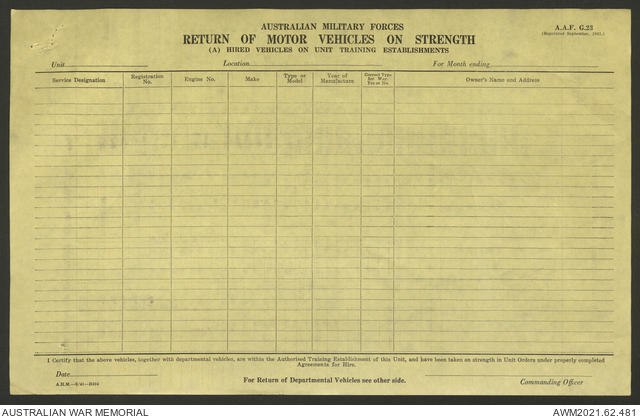 AUSTRALIAN MILITARY FORCES
A.A.F. G.23
RETURN OF MOTOR VEHICLES ON STRENGTH
(Reprinted September, 1941.)
(A) HIRED VEHICLES ON UNIT TRAINING ESTABLISHMENTS
Unit Location For Month ending
Service Designation
Registration No.
Engine No.
Make
Type or Model
Year of Manufacture
Correct Type for War. Yes or No.
Owner's Name and Address
I Certify that the above vehicles, together with departmental vehicles, are within the Authorised Training Establishment of this Unit, and have been taken on strength in Unit Orders under properly completed
Agreements for Hire.
Date
For Return of Departmental Vehicles see other side.
Commanding Officer
AUSTRALIAN WAR MEMORIAL
AWM2021.62.481